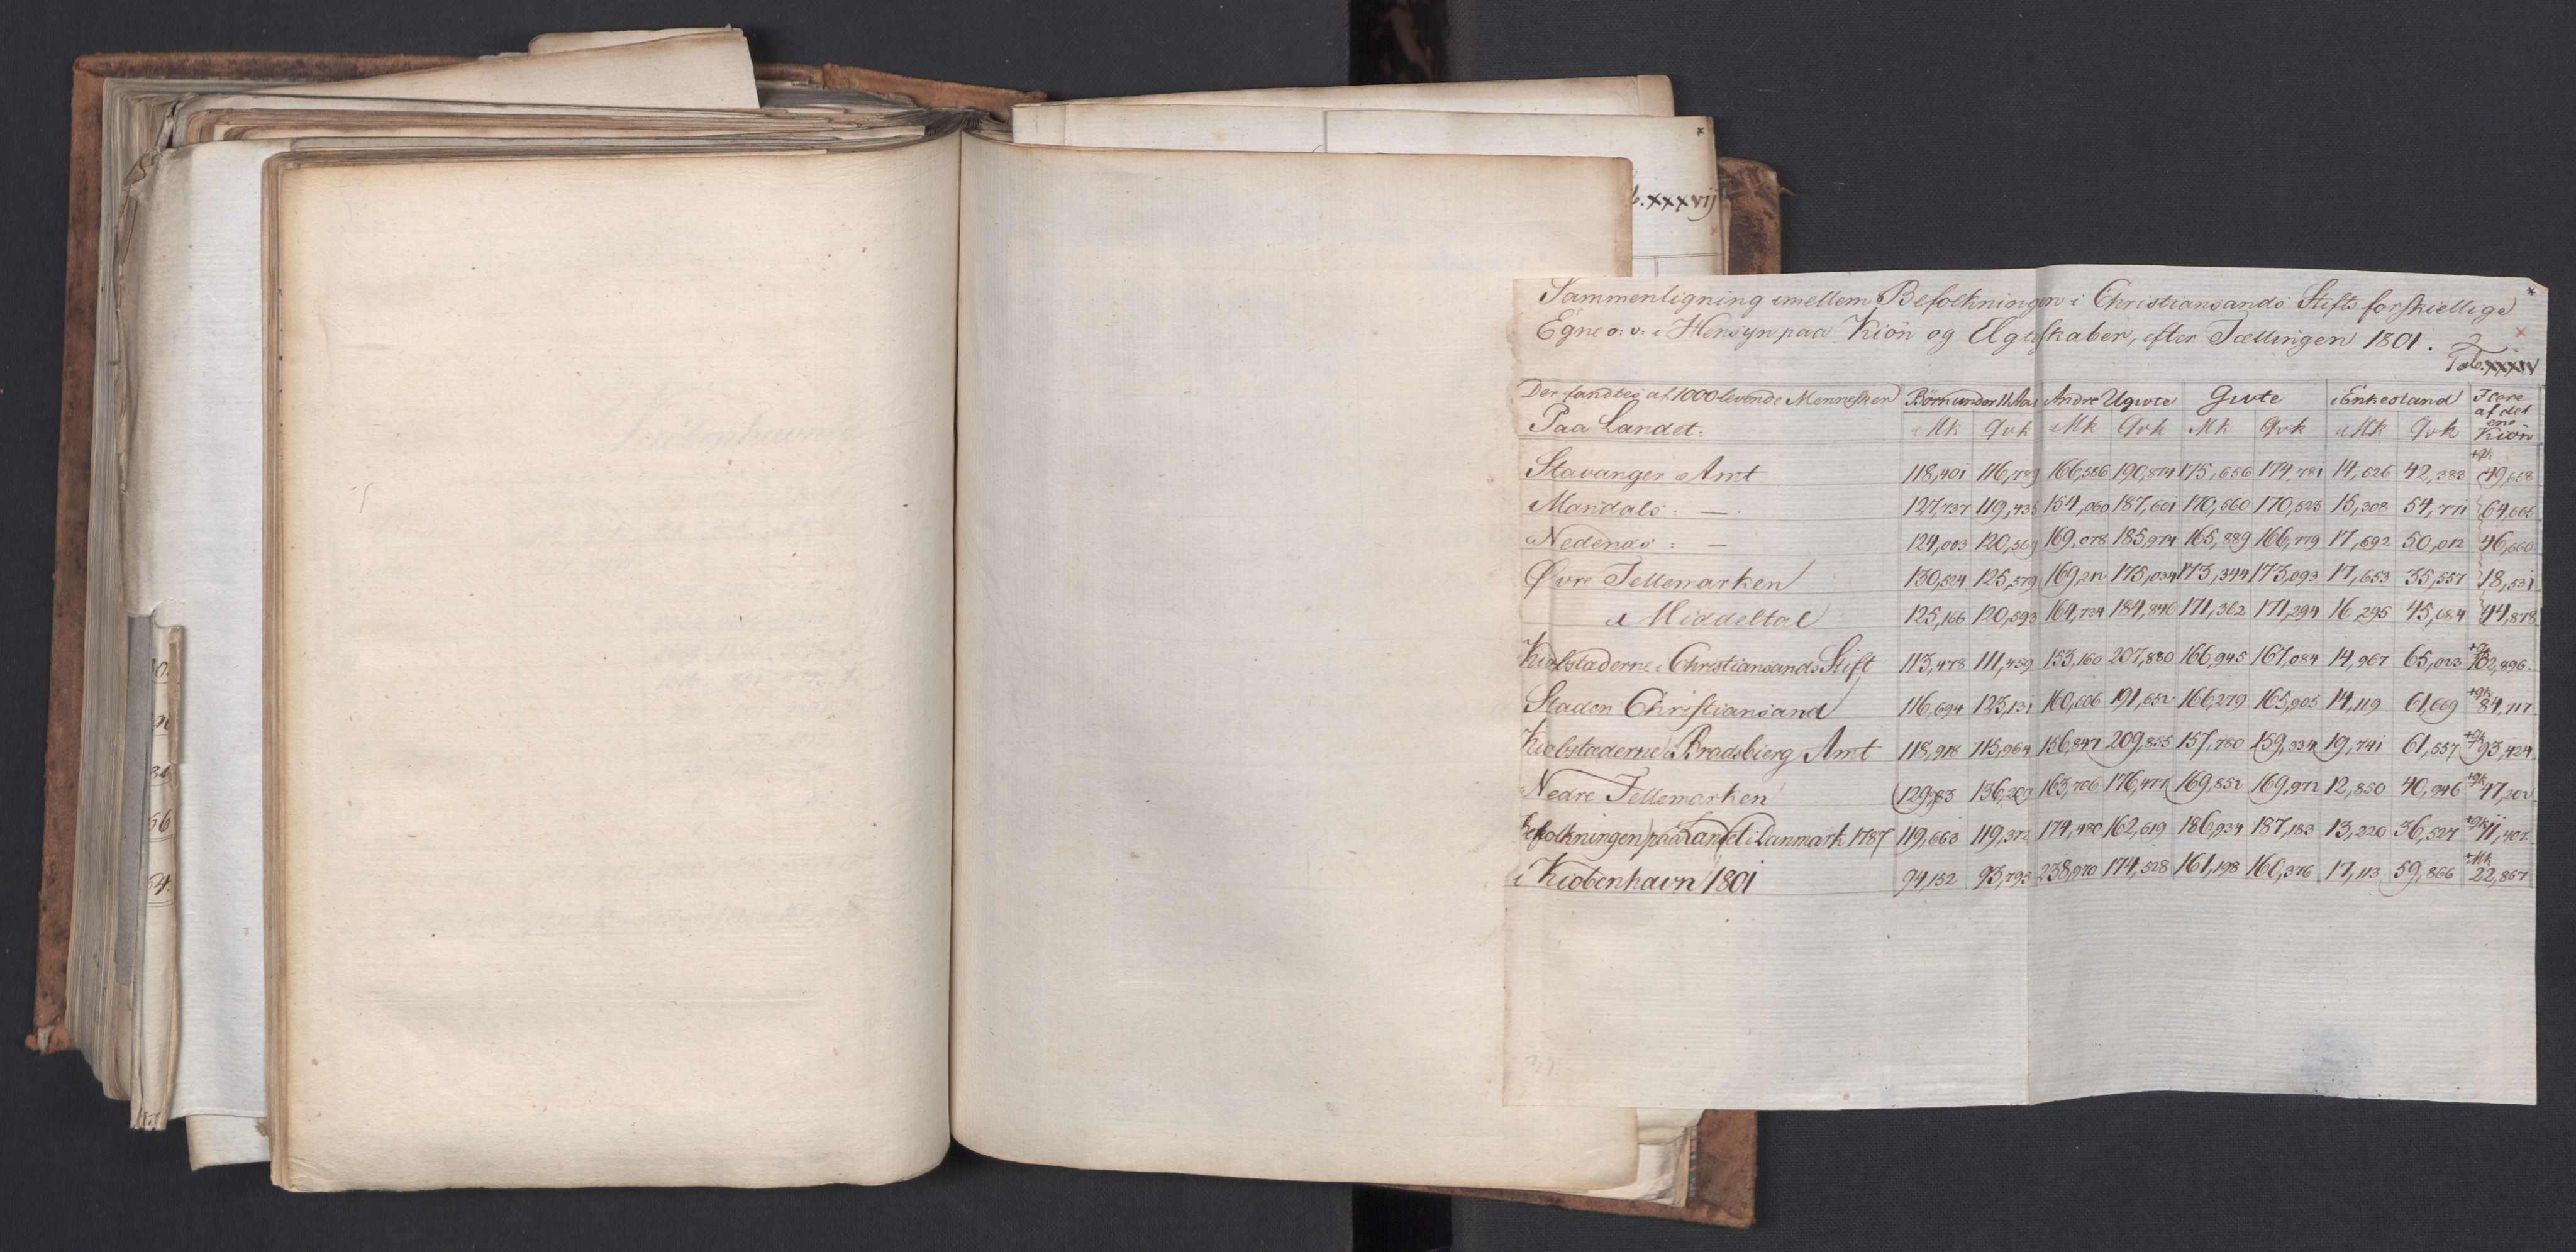 Sammenligning imellem Befolkningen i Christiansands Stifts forskiellige
Egne o: v: i Hensyn paa Kiön og Ægteskaber, efter Tællingen 1801.
Tab. xxxiv
Der fandtes af 1000 levende Mennesker Börn under 11 Aar Andre Ugivte Givte i Enkestand Flere af det ene Kiön
Paa Landet: Mk Qvk Mk Qvk Mk Qvk Mk Qvk
Stavanger Amt 118,401 116,789 166,586 190,874 175,656 174,781 14,526 42,388 +qk 49,658
Mandals: — 127,737 119,435 154,060 187,601 170,560 170,523 15,308 54,771 64,665
Nedenäs: — 124,003 120,569 169,078 185,974 165,889 166,779 17,692 50,012 46,660
Øvre Tellemarken 130,524 125,579 169,211 175,034 173,344 173,093 17,653 35,557 18,531
Middeltal 125,166 120,593 164,734 184,846 171,362 171,294 16,295 45,684 44,878
Kiøbstæderne i Christiansands Stift 113,478 111,459 153,160 207,880 166,945 167,084 14,967 65,023 +qk 102,896
Staden Christiansand 116,694 123,131 160,606 191,652 166,279 165,905 14,119 61,669 +qk 84,717
Kiøbstæderne i Bradsbierg Amt 118,918 115,964 156,847 209,855 157,780 159,334 19,741 61,557 +qk 93,424
Nedre Tellemarken 163,706 176,477 169,852 169,972 12,850 40,946 +qk 47,202
Befolkningen paa Landet i Danmark 1787 119,663 119,372 174,480 162,619 186,934 187,183 13,220 36,527 +qk 11,407
i Kiøbenhavn 1801 94,152 93,795 238,970 174,528 161,198 160,376 17,113 59,866 +Mk 22,867
xxxvij